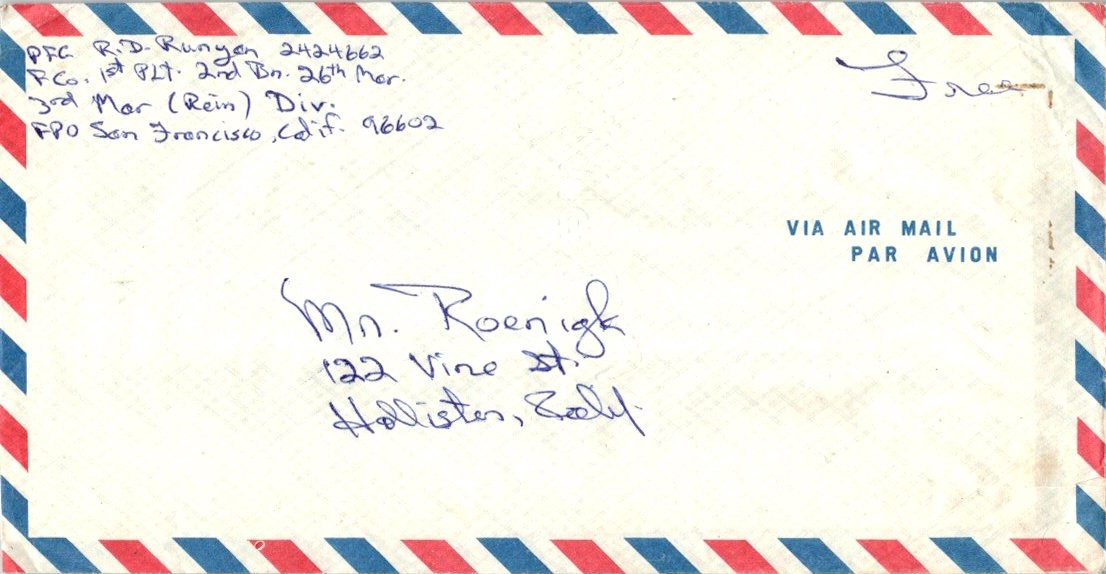 PFC R.D. Runyon 2424662
F Co. 1st PLT. 2nd Bn. 26th Mar.
3rd Mar (Rein) Div.
FPO San Francisco, Calif. 96602
Free
VIA AIR MAIL
PAR AVION
Mr. Roenigk
122 Vine St.
Hollister, Calif.